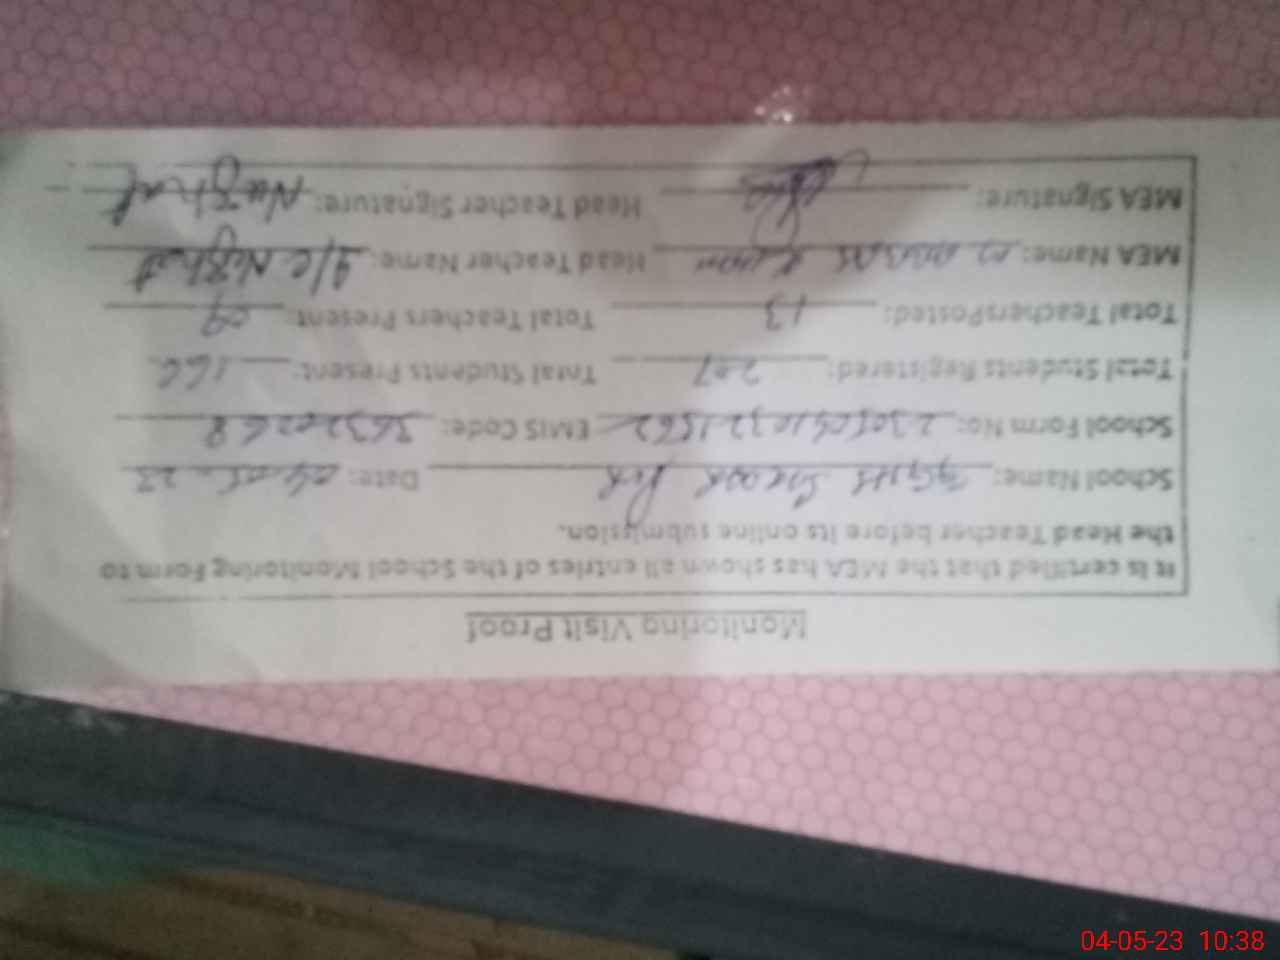 Monitoring Visit Proof
It is certified that the MEA has shown all entries of the School Monitoring Form to
the Head Teacher before its online submission.
School Name: GGHS Date: 04-05-23
School Form No: EMIS Code:
Total Students Registered: 207 Total Students Present: 166
Total TeachersPosted: 13 Total Teachers Present: 09
MEA Name: M Head Teacher Name: I/c Nighat
MEA Signature: Head Teacher Signature: Nighat
04-05-23 10:38